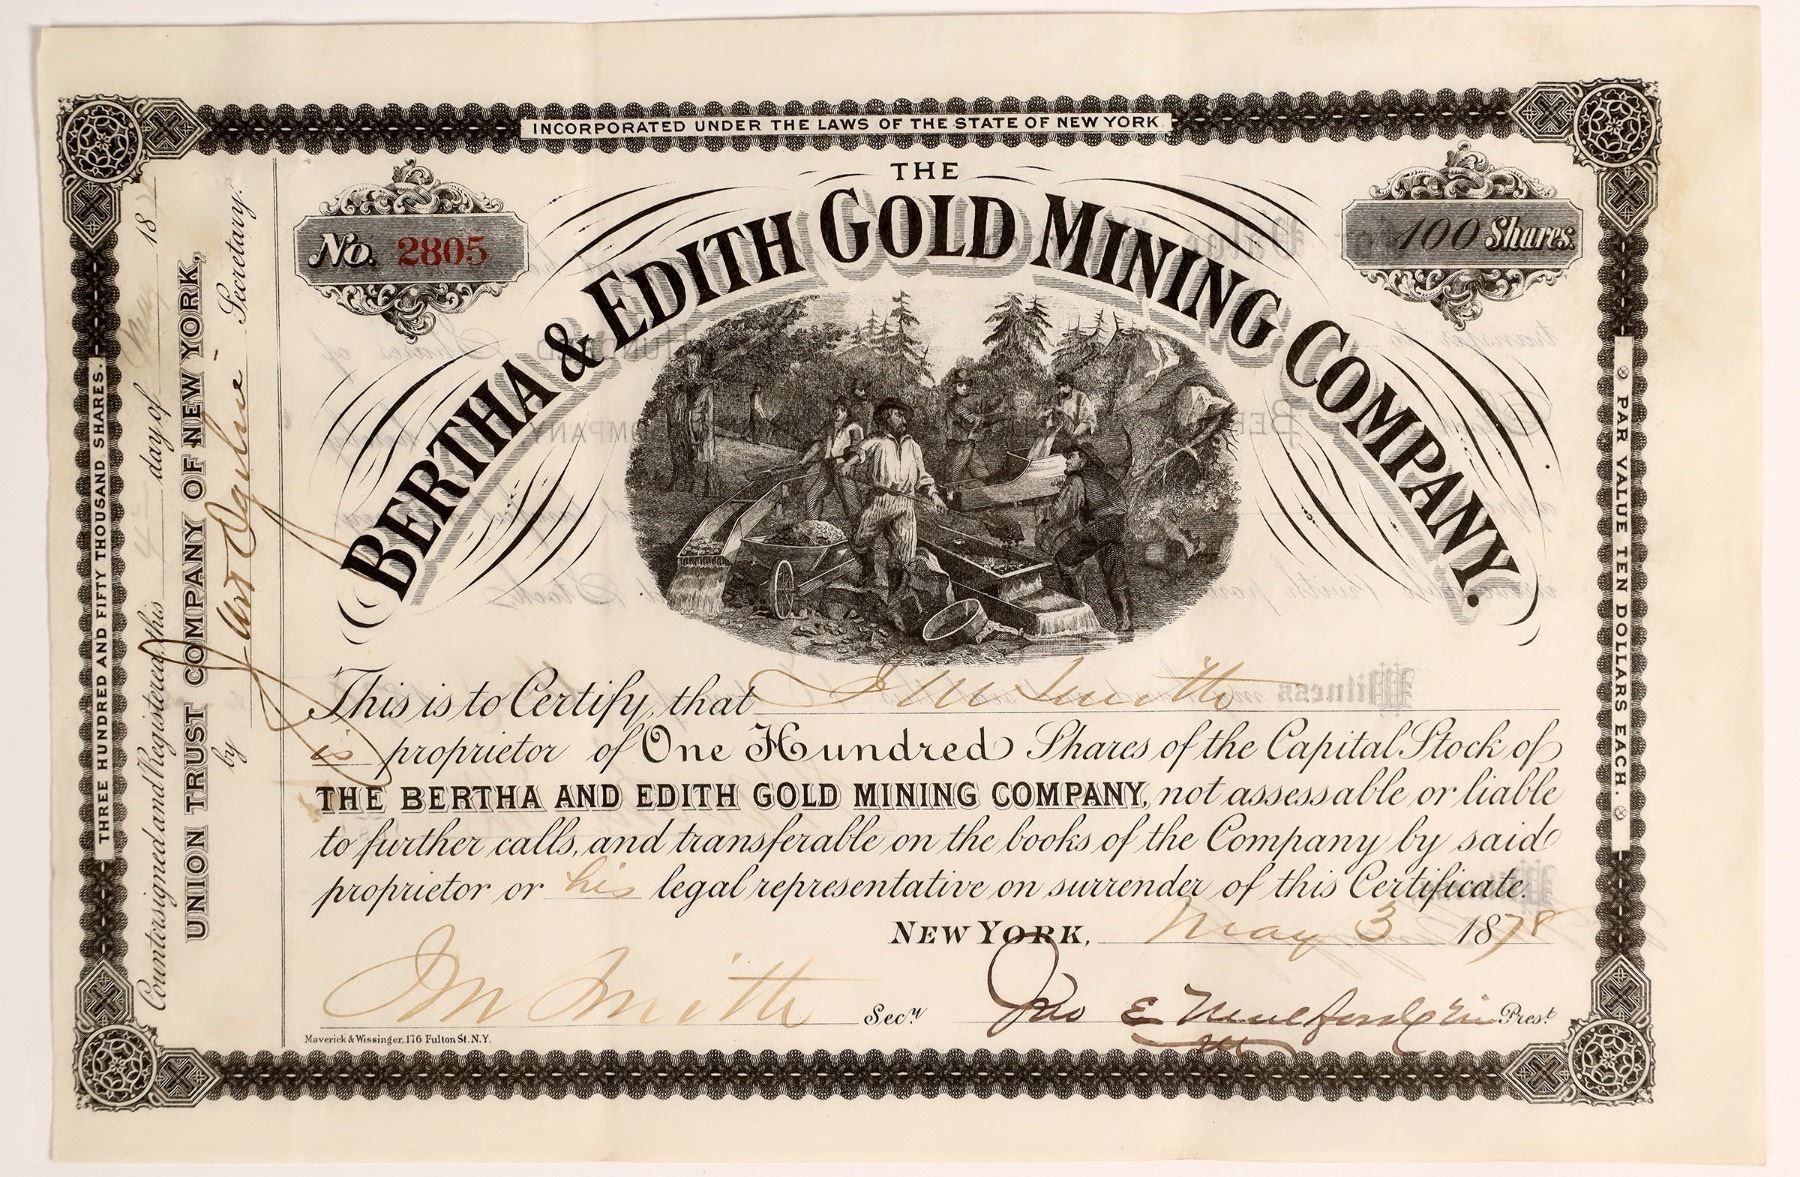 INCORPORATED UNDER THE LAWS OF THE STATE OF NEW YORK
THE
BERTHA & EDITH GOLD MINING COMPANY.
No. 2805
100 Shares.
This is to Certify, that J M Smith
is proprietor of One Hundred Shares of the Capital Stock of
THE BERTHA AND EDITH GOLD MINING COMPANY, not assessable or liable
to further calls, and transferable on the books of the Company by said
proprietor or his legal representative on surrender of this Certificate.
NEW YORK, May 3 1878
J M Smith Secy Jno E Prest
Maverick & Wissinger, 176 Fulton St. N.Y.
THREE HUNDRED AND FIFTY THOUSAND SHARES.
Countersigned and Registered, this 4 day of May 187
UNION TRUST COMPANY OF NEW YORK,
by Secretary.
PAR VALUE TEN DOLLARS EACH.